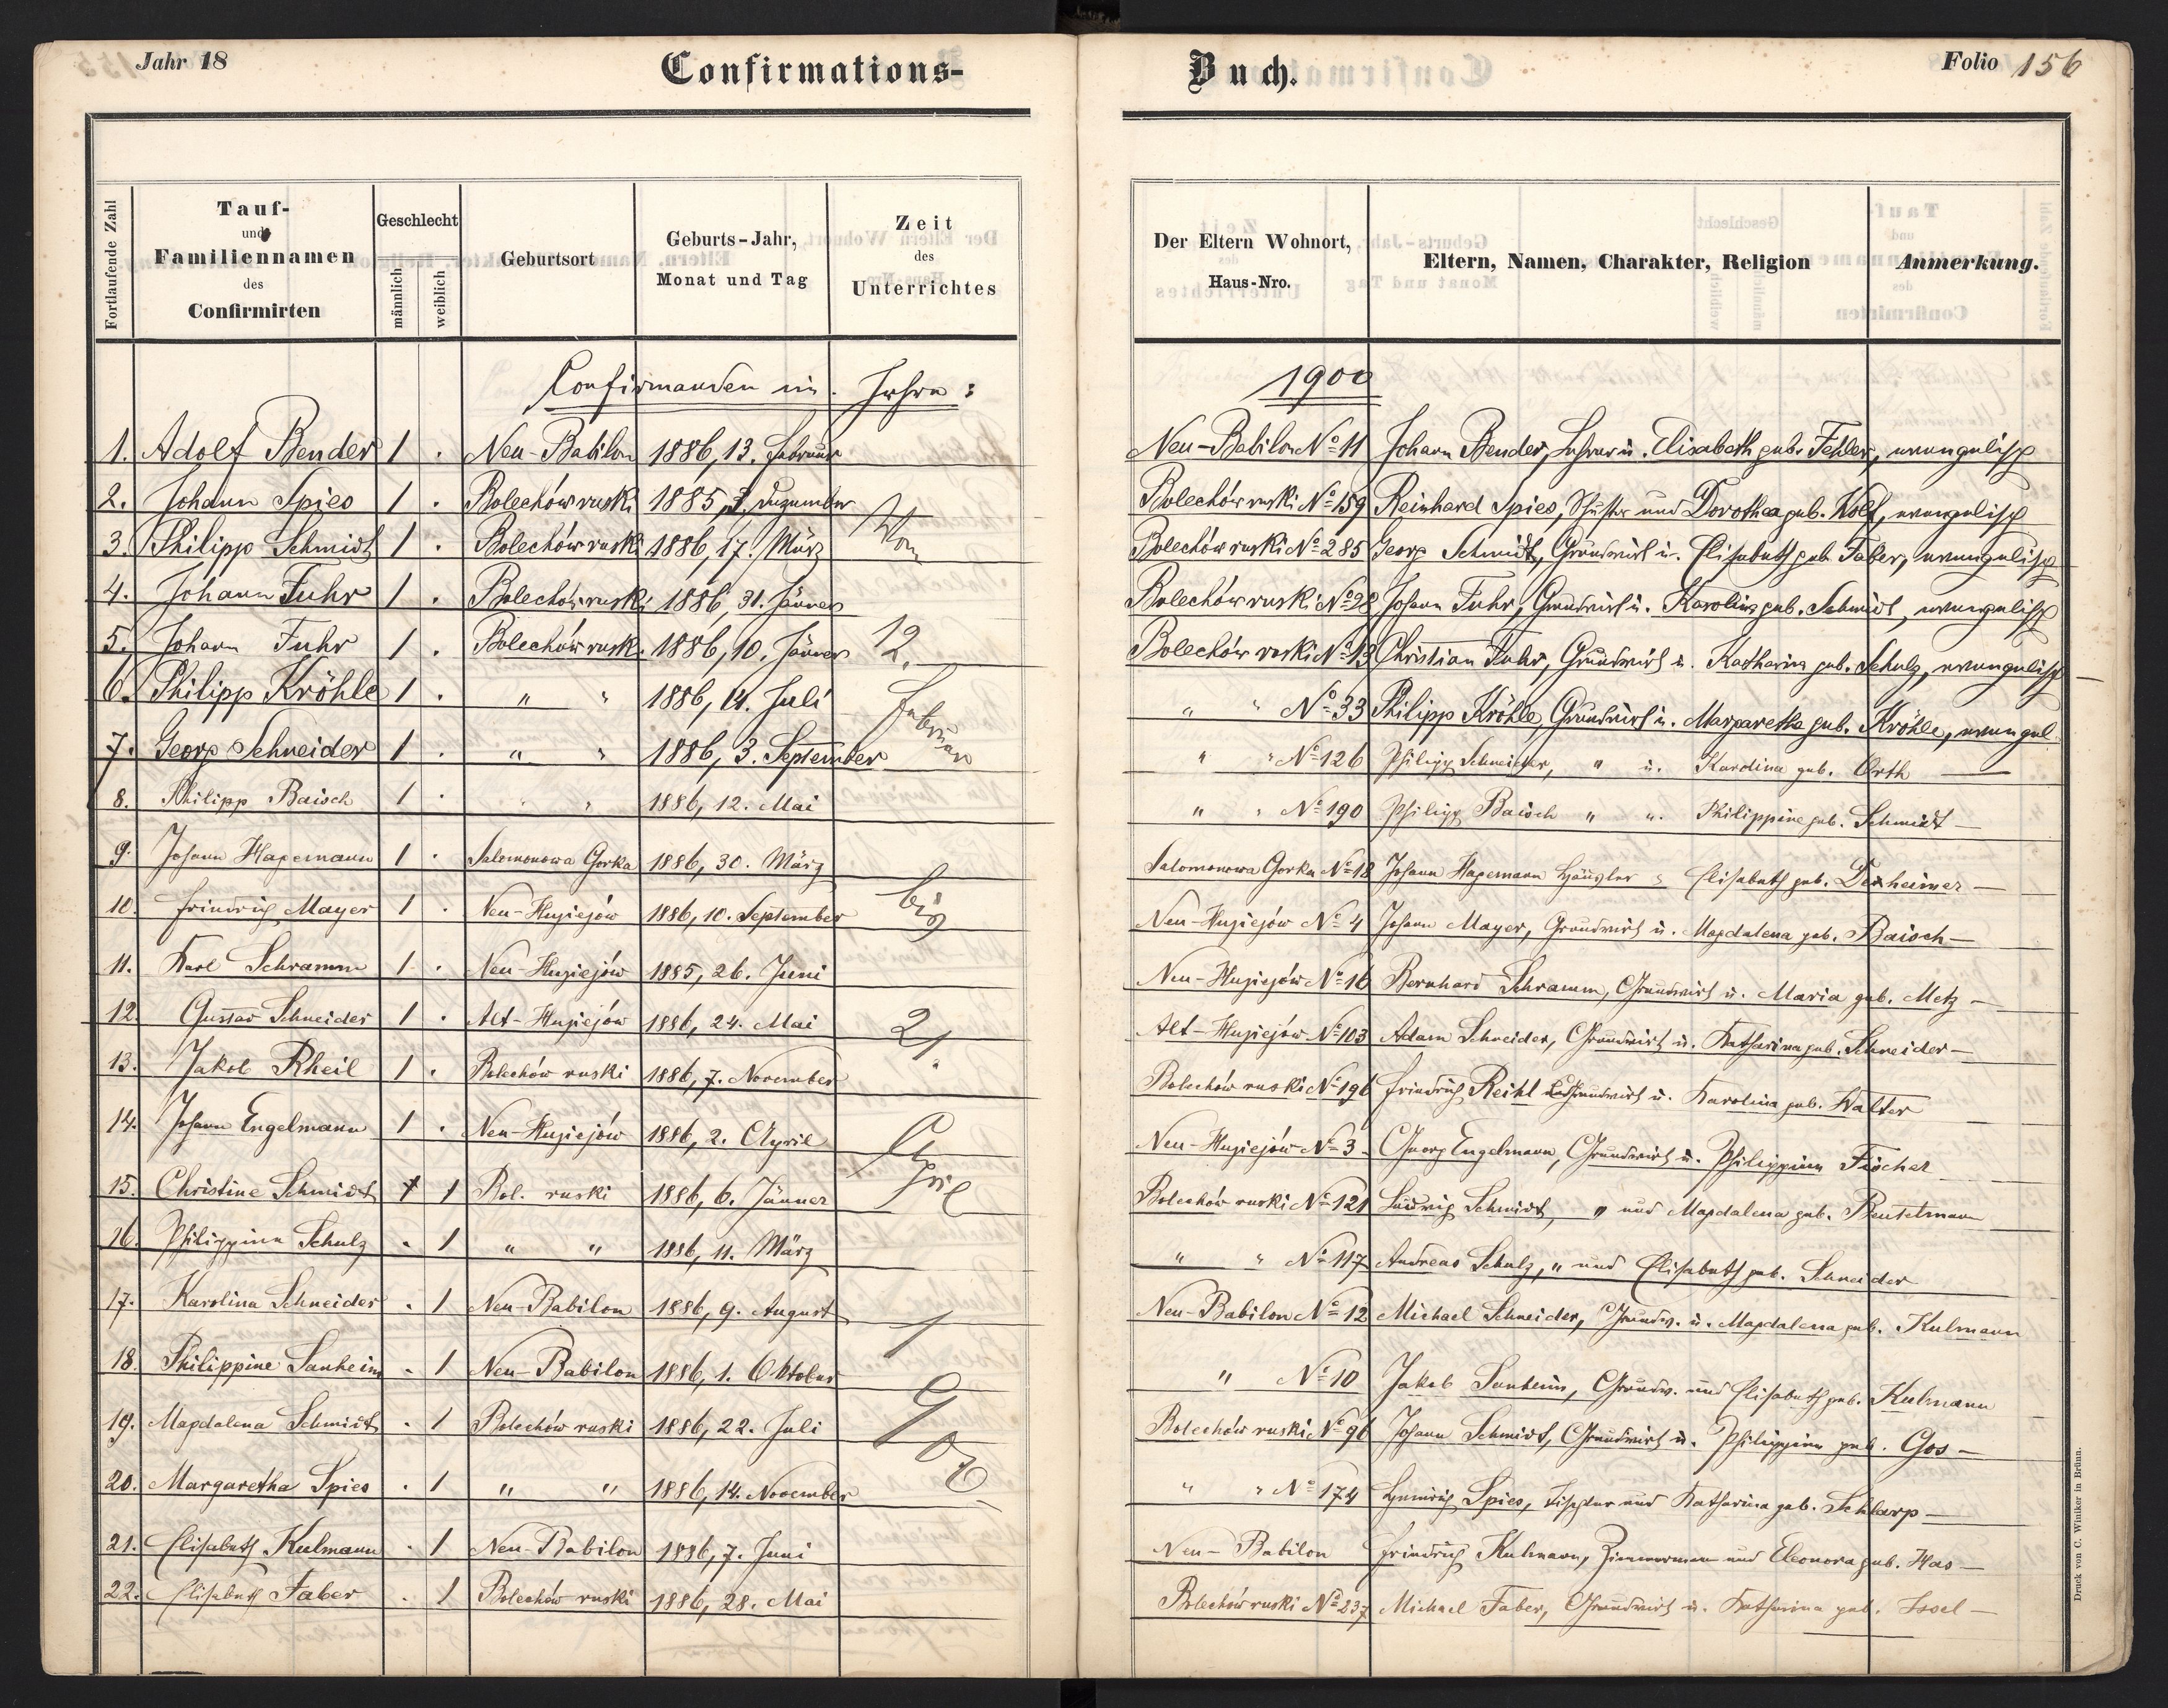 Jahr 18
Confirmations-
Fortlaufende Zahl
Tauf-
und
Familiennamen
des
Confirmirten
Geschlecht
männlich
weiblich
Geburtsort
Geburts-Jahr,
Monat und Tag
Zeit
des
Unterrichtes
Confirmanden im Jahre:
1. Adolf Bender 1 . Neu-Babilon 1886, 13. Februar
2. Johann Spies 1 . Bolechów ruski 1885, 3. Dezember
Vom
3. Philipp Schmidt 1 . Bolechów ruski 1886, 17. März
4. Johann Fuhr 1 . Bolechów ruski 1886, 31. Jänner
5. Johann Fuhr 1 . Bolechów rusk. 1886, 10. Jänner 12.
6. Philipp Kröhle 1 . " " 1886, 14. Juli
Februar
7. Georg Schneider 1 . " " 1886, 3. September
8. Philipp Baisch 1 . " " 1886, 12. Mai
9. Johann Hagemann 1 . Salomonowa Gorka 1886, 30. März
10. Friedrich Mayer 1 . Neu-Hugiejów 1886, 10. September bis
11. Karl Schramm 1 . Neu-Hugiejów 1885, 26. Juni
12. Gustav Schneider 1 . Alt-Hugiejów 1886, 24. Mai 21.
13. Jakob Rheil 1 . Bolechów ruski 1886, 7. November
14. Johann Engelmann 1 . Neu-Hugiejów 1886, 2. April
April
15. Christine Schmidt 1 Bol. ruski 1886, 6. Jänner
16. Philippina Schulz . 1 " " 1886, 11. März
17. Karolina Schneider . 1 Neu-Babilon 1886, 9. August 1
18. Philippine Sauheim . 1 Neu-Babilon 1886, 1. Oktober
19. Magdalena Schmidt . 1 Bolechów ruski 1886, 22. Juli 900
20. Margaretha Spies . 1 " " 1886, 14. November
21. Elisabeth Kulmann . 1 Neu-Babilon 1886, 7. Juni
22. Elisabeth Faber . 1 Bolechów ruski 1886, 28. Mai
Buch.
Folio 156
Der Eltern Wohnort,
Haus-Nro.
Eltern, Namen, Charakter, Religion
Anmerkung.
1900
Neu-Babilon No 11 Johann Bender, Lehrer u. Elisabeth geb. Fehler, evangelisch
Bolechów ruski No 159 Reinhard Spies, Schuster und Dorothea geb. Kolf, evangelisch
Bolechów ruski No 285 Georg Schmidt, Grundwirt u. Elisabeth geb. Faber, evangelisch
Bolechów ruski No 28 Johann Fuhr, Grundwirt u. Karolina geb. Schmidt, evangelisch
Bolechów ruski No 13 Christian Fuhr, Grundwirt u. Katharina geb. Schulz, evangelisch
" " No 33 Philipp Kröhle, Grundwirt u. Margaretha geb. Kröhle, evangel
" " No 126 Philipp Schneider, " u. Karolina geb. Orth —
" " No 190 Philipp Baisch " u. Philippine geb. Schmidt —
Salomonowa Gorka No 18 Johann Hagemann Häusler Elisabeth geb. Dexheimer —
Neu-Hugiejów No 4 Johann Mayer, Grundwirt u. Magdalena geb. Baisch —
Neu-Hugiejów No 16 Bernhard Schramm, Grundwirt u. Maria geb. Metz —
Alt-Hugiejów No 103 Adam Schneider, Grundwirt u. Katharina geb. Schneider —
Bolechów ruski No 196 Friedrich Reihl Grundwirt u. Karolina geb. Walter
Neu-Hugiejów No 3 Georg Engelmann, Grundwirt u. Philippina Fischer
Bolechów ruski No 121 Ludwig Schmidt, " und Magdalena geb. Beutelmann
" " No 117 Andreas Schulz, " und Elisabeth geb. Schneider
Neu-Babilon No 12 Michael Schneider, Grundw. u. Magdalena geb. Kulmann
" No 10 Jakob Sauheim, Grundw. und Elisabeth geb. Kulmann
Bolechów ruski No 96 Johann Schmidt, Grundwirt u. Philippina geb. Gos —
" " No 174 Heinrich Spies, Tischler und Katharina geb. Schlarp —
Neu-Babilon Friedrich Kulmann, Zimmerman und Eleonora geb. Has —
Bolechów ruski No 237 Michael Faber, Grundwirt u. Katharina geb. Issel —
Druck von C. Winiker in Brünn.